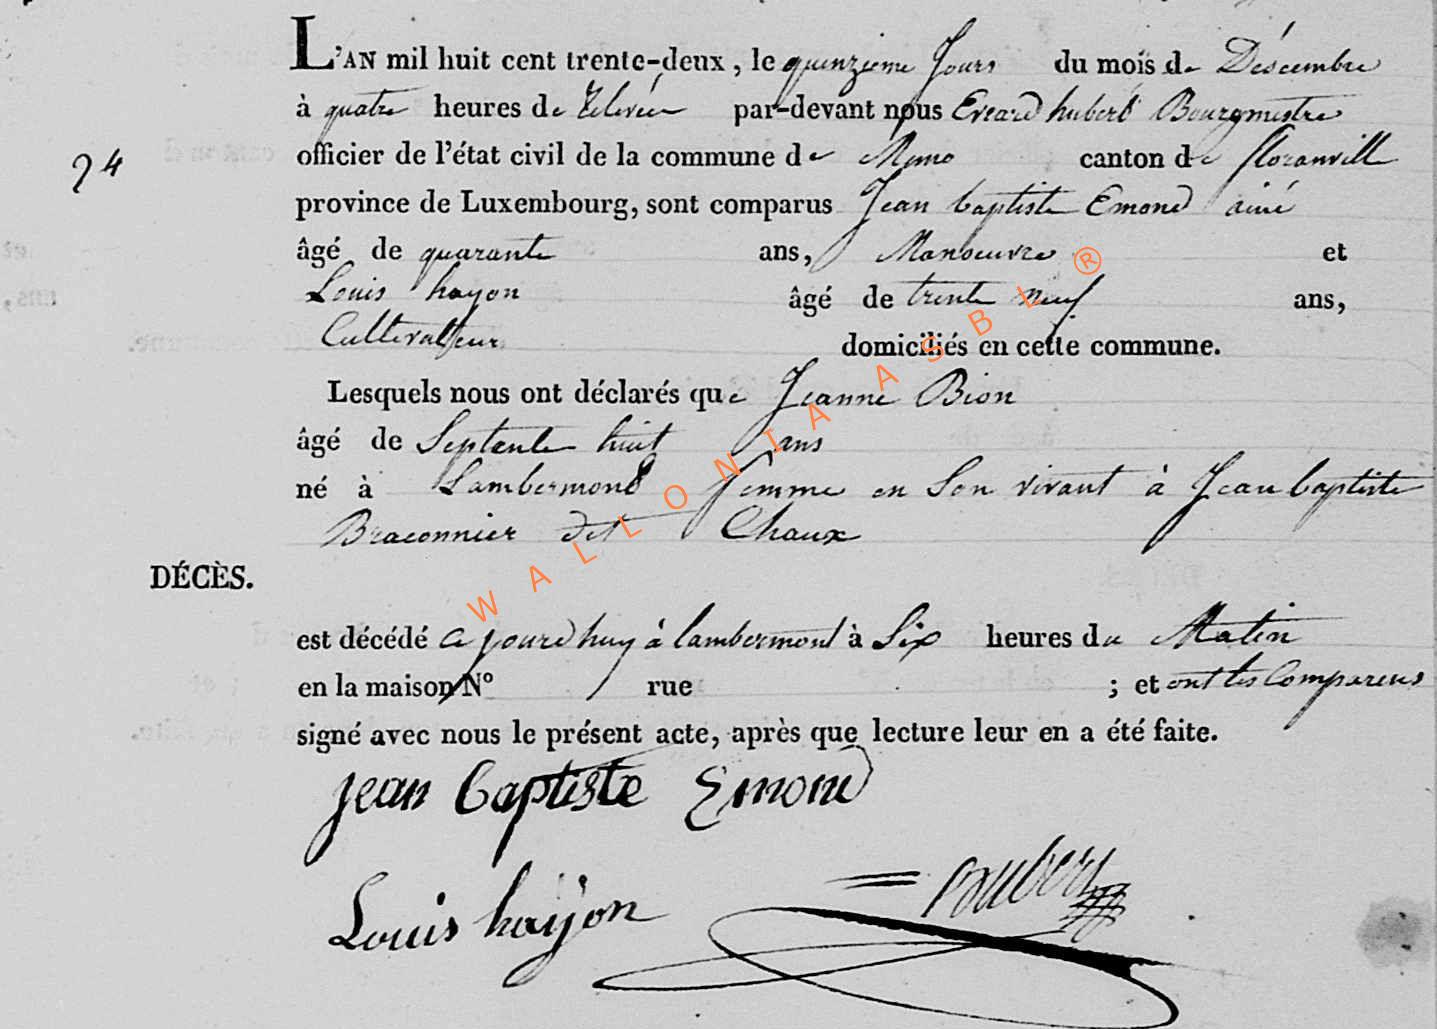 L'AN mil huit cent trente-deux, le quinzieme Jours du mois de Déscembre
à quatre heures de Relevée par-devant nous Evrard hubert Bourgmestre
94
officier de l'état civil de la commune de Muno canton de floranvill
province de Luxembourg, sont comparus Jean baptiste Emond ainé
âgé de quarante ans, Manoeuvre et
Louis hayon âgé de trente neuf ans,
Cultivatteur domiciliés en cette commune.
Lesquels nous ont déclarés que Jeanne Bion
âgé de Septante huit ans
né à Lambermond femme en Son vivant à Jean baptiste
Braconnier dit Chaux
DÉCÈS.
est décédé ce jourdhuy à lambermont à Six heures du Matin
en la maison N° rue ; et ont les Compareus
signé avec nous le présent acte, après que lecture leur en a été faite.
jean baptiste Emond
Louis hayon
WALLONIA ASBL ®